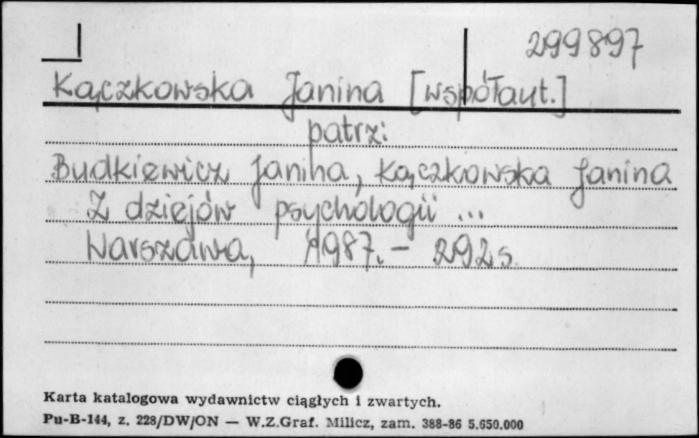 299897
Kączkowska Janina [współaut.]
patrz:
Budkiewicz Janina, Kączkowska Janina
Z dziejów psychologii ...
Warszawa, 1987. - 292 s.
Karta katalogowa wydawnictw ciągłych i zwartych.
Pu-B-144, z. 228/DW/ON — W.Z.Graf. Milicz, zam. 388-86 5.650.000